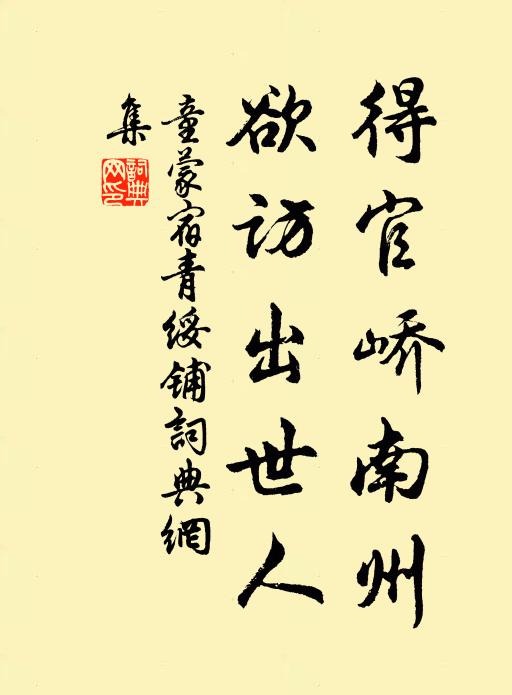 得官峤南州
欲訪出世人
童蒙宿青綏鋪詞典網
集
詞典
网印